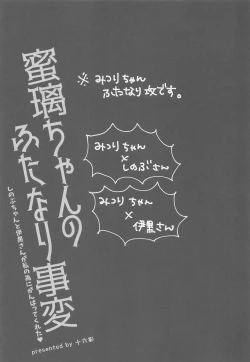 ※ みつりちゃん
ふたなり攻です。
みつりちゃん
×
しのぶさん
みつりちゃん
×
伊黒さん
蜜璃ちゃんの
ふたなり事変
しのぶちゃんと伊黒さんが私の為にがんばってくれた♥
presented by 十六夜